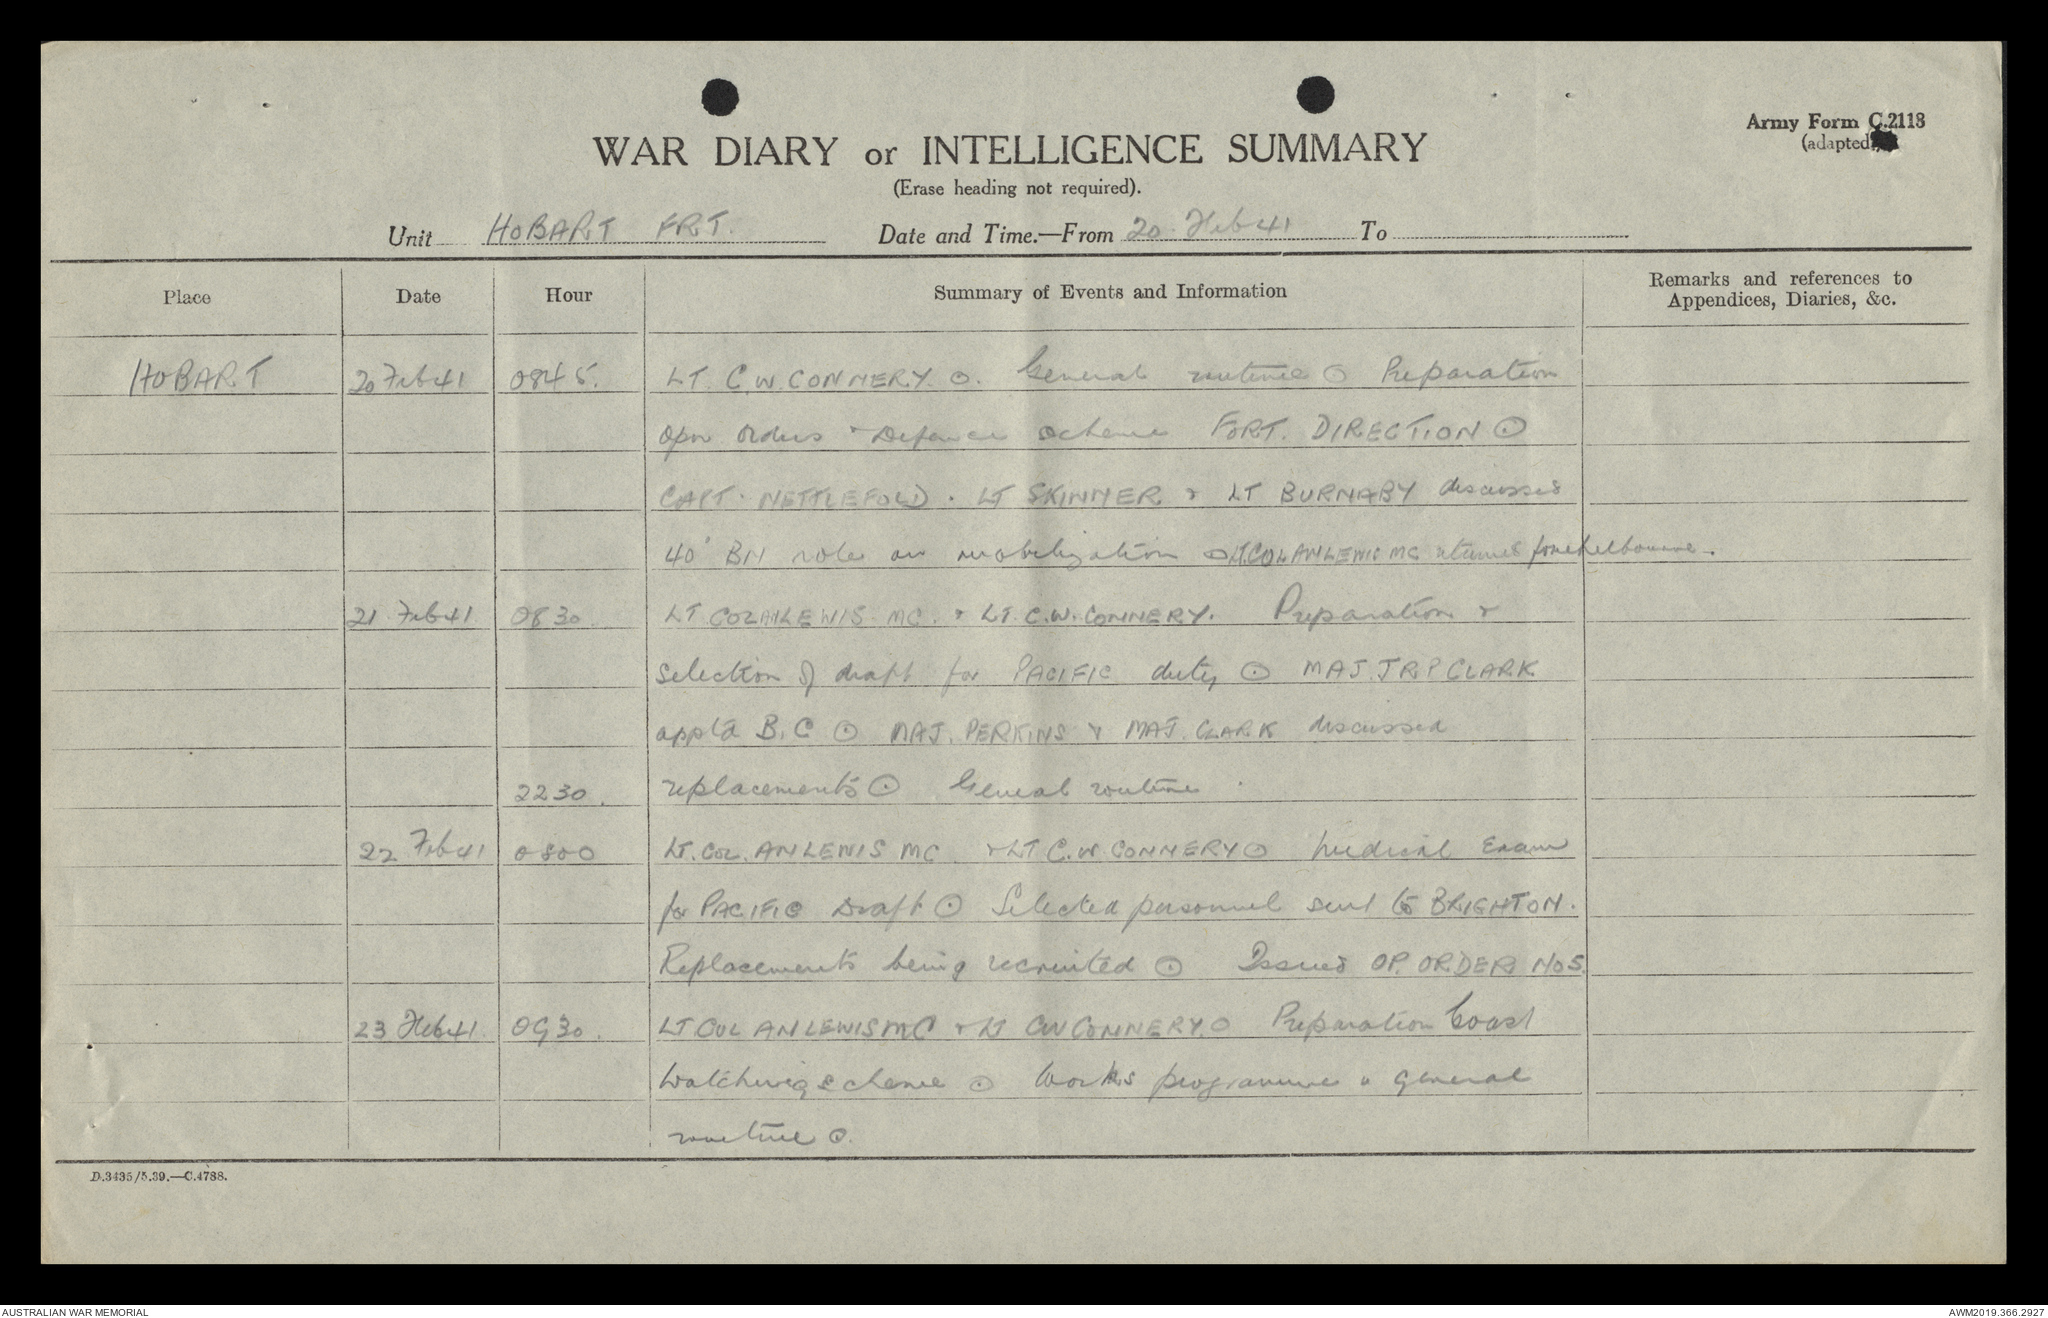 Army Form C.2118
(adapted)
WAR DIARY or INTELLIGENCE SUMMARY
(Erase heading not required).
Unit HOBART FRT. Date and Time.—From 20 Feb 41 To
Place Date Hour Summary of Events and Information Remarks and references to
Appendices, Diaries, &c.
HOBART 20 Feb 41 0845. LT. C.W. CONNERY ⊙. General routine ⊙ Preparation
opn orders & Defence scheme FORT. DIRECTION ⊙
CAPT. NETTLEFOLD. LT SKINNER & LT BURNABY discusses
40 BN role on mobilization ⊙ LT. COL AN LEWIS MC returned Melbourne.
21 Feb 41 0830. LT COL AN LEWIS MC. & LT. C.W. CONNERY. Preparation &
selection of draft for PACIFIC duty ⊙ MAJ. JRP CLARK
appt'd B.C ⊙ MAJ. PERKINS & MAJ. CLARK discussed
2230. replacements ⊙ General routine.
22 Feb 41 0800 LT. COL. AN LEWIS MC & LT C.W. CONNERY ⊙ Medical Exam
for PACIFIC Draft ⊙ Selected personnel sent to BRIGHTON.
Replacements being recruited ⊙ Issued OP. ORDER No 5.
23 Feb 41. 0930. LT COL AN LEWIS MC & LT CW CONNERY. ⊙ Preparation Coast
Watching scheme ⊙ Works programme & general
routine ⊙.
D.3435/5.39.—C.4788.
AUSTRALIAN WAR MEMORIAL AWM2019.366.2927